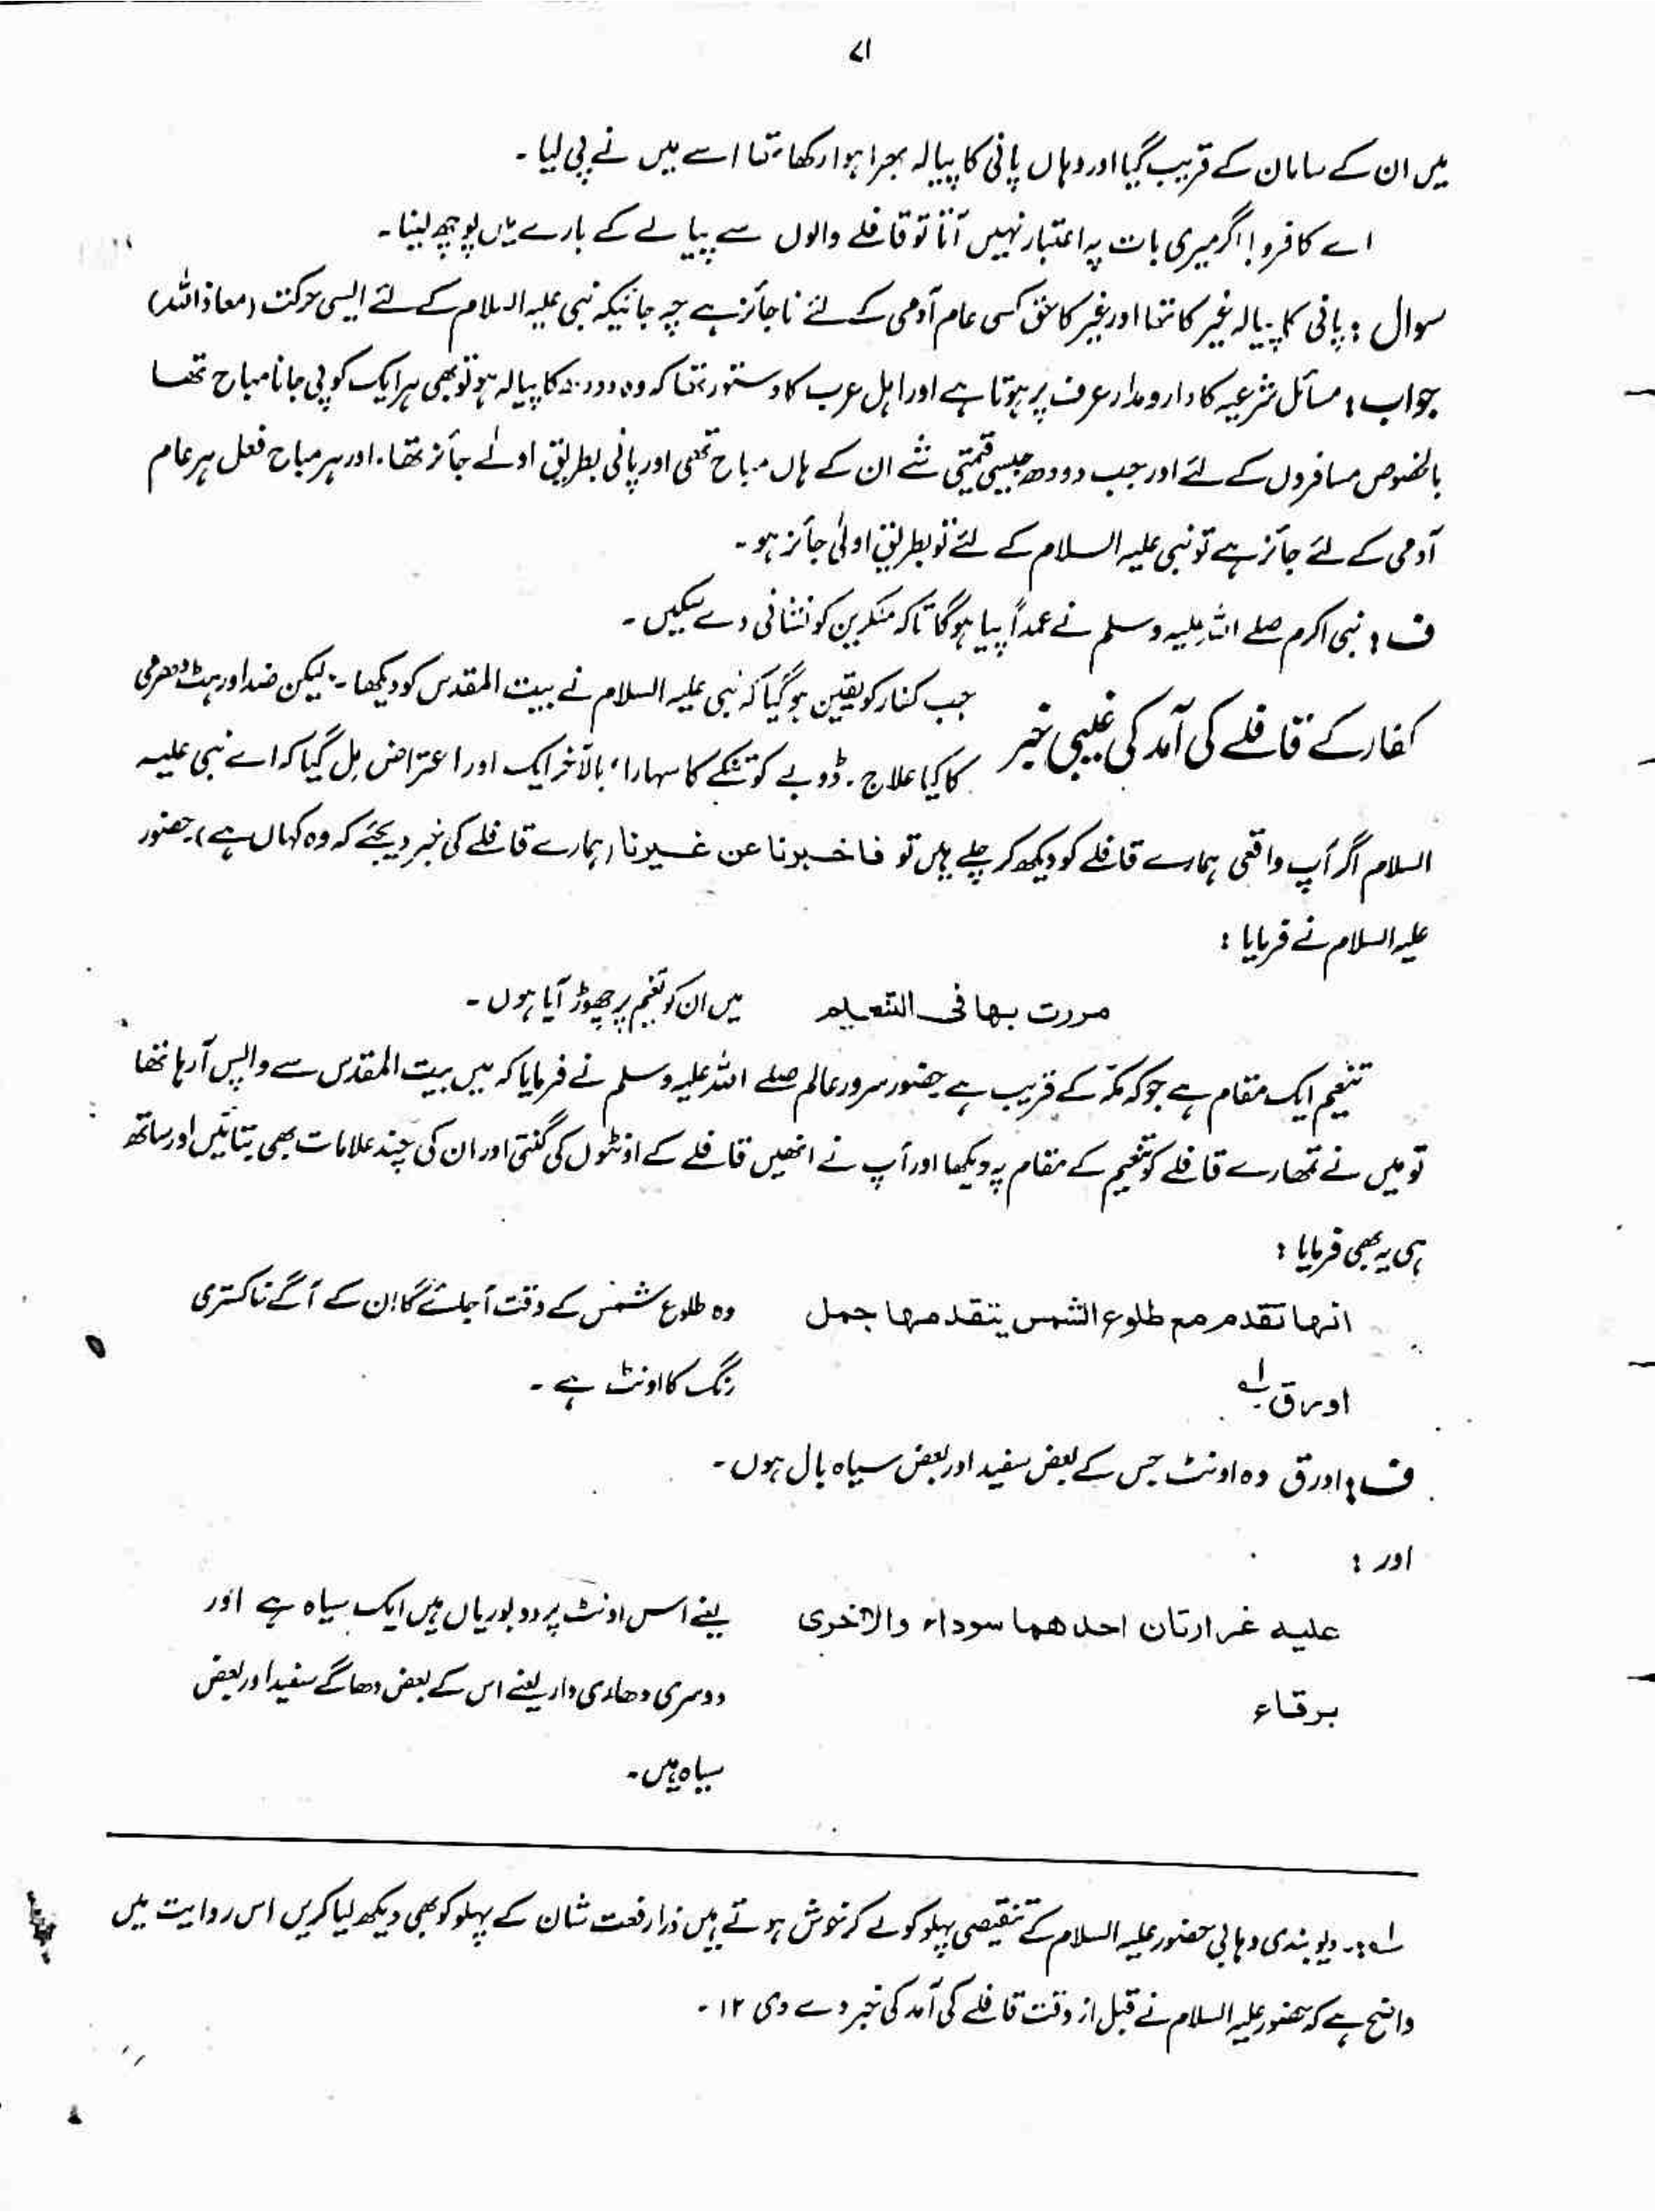 ۷۱
میں ان کے سامان کے قریب گیا اور وہاں پانی کا پیالہ بھرا ہوا رکھا تھا اسے میں نے پی لیا ۔
اے کافرو! اگر میری بات پہ اعتبار نہیں آتا تو قافلے والوں سے پیالے کے بارے میں پوچھ لینا ۔
سوال : پانی کا پیالہ غیر کا تھا اور غیر کا حق کسی عام آدمی کے لئے ناجائز ہے چہ جائیکہ نبی علیہ السلام کے لئے ایسی حرکت (معاذ اللہ)
جواب : مسائل شرعیہ کا دارومدار عرف پر ہوتا ہے اور اہل عرب کا دستور تھا کہ وہ دودھ کا پیالہ ہو تو بھی ہر ایک کو پی جانا مباح تھا
بالخصوص مسافروں کے لئے اور جب دودھ جیسی قیمتی شے ان کے ہاں مباح تھی اور پانی بطریق اولےٰ جائز تھا ۔ اور ہر مباح فعل ہر عام
آدمی کے لئے جائز ہے تو نبی علیہ السلام کے لئے تو بطریق اولیٰ جائز ہو ۔
ف : نبی اکرم صلے اللہ علیہ وسلم نے عمداً پیا ہوگا تاکہ منکرین کو نشانی دے سکیں ۔
کفار کے قافلے کی آمد کی غیبی خبر
جب کفار کو یقین ہو گیا کہ نبی علیہ السلام نے بیت المقدس کو دیکھا ۔ لیکن ضد اور ہٹ دھرمی
کا کیا علاج ۔ ڈوبے کو تنکے کا سہارا ، بالآخر ایک اور اعتراض مل گیا کہ اے نبی علیہ
السلام اگر آپ واقعی ہمارے قافلے کو دیکھ کر چلے ہیں تو فاخبرنا عن غیرنا (ہمارے قافلے کی خبر دیجئے کہ وہ کہاں ہے) حضور
علیہ السلام نے فرمایا :
مررت بها فی التنعیم میں ان کو تنعیم پر چھوڑ آیا ہوں ۔
تنعیم ایک مقام ہے جو کہ مکہ کے قریب ہے حضور سرور عالم صلے اللہ علیہ وسلم نے فرمایا کہ میں بیت المقدس سے واپس آرہا تھا
تو میں نے تمھارے قافلے کو تنعیم کے مقام پہ دیکھا اور آپ نے انھیں قافلے کے اونٹوں کی گنتی اور ان کی چند علامات بھی بتائیں اور ساتھ
ہی یہ بھی فرمایا :
انها تقدم مع طلوع الشمس يتقدمها جمل وہ طلوع شمس کے وقت آجائے گا ان کے آگے خاکستری
اورق لے رنگ کا اونٹ ہے ۔
ف : اورق وہ اونٹ جس کے بعض سفید اور بعض سیاہ بال ہوں ۔
اور :
علیه غرارتان احدهما سوداء والاخری یعنے اس اونٹ پر دو بوریاں ہیں ایک سیاہ ہے اور
برقاء دوسری دھاری دار یعنے اس کے بعض دھاگے سفید اور بعض
سیاہ ہیں ۔
لے :۔ دیوبندی وہابی حضور علیہ السلام کے تنقیصی پہلو کو لے کر خوش ہوتے ہیں ذرا رفعت شان کے پہلو کو بھی دیکھ لیا کریں اس روایت میں
واضح ہے کہ حضور علیہ السلام نے قبل از وقت قافلے کی آمد کی خبر دے دی ۱۲ ۔